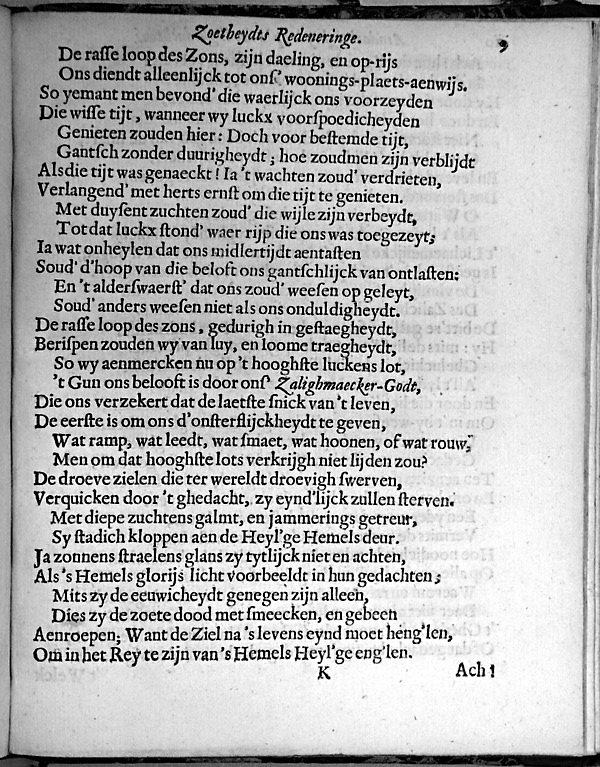 Zoetheydts Redeneringe. 9
De rasse loop des Zons, zijn daeling, en op-rijs
Ons diendt alleenlijck tot ons' woonings-plaets-aenwijs.
So yemant men bevond' die waerlijck ons voorzeyden
Die wisse tijt, wanneer wy luckx voorspoedicheyden
Genieten zouden hier: Doch voor bestemde tijt,
Gantsch zonder duurigheydt; hoe zoudmen zijn verblijdt
Als die tijt was genaeckt! Ia 't wachten zoud' verdrieten,
Verlangend' met herts ernst om die tijt te genieten.
Met duysent zuchten zoud' die wijle zijn verbeydt,
Tot dat luckx stond' waer rijp die ons was toegezeyt;
Ia wat onheylen dat ons midlertijdt aentasten
Soud' d'hoop van die beloft ons gantschlijck van ontlasten:
En 't alderswaerst' dat ons zoud' weesen opgeleyt,
Soud' anders weesen niet als ons onduldigheydt.
De rasse loop des zons, gedurigh in gestaegheydt,
Berispen zouden wy van luy, en loome traegheydt,
So wy aenmercken nu op 't hooghste luckens lot,
't Gun ons belooft is door ons' Zalighmaecker-Godt,
Die ons verzekert dat de laetste snick van 't leven,
De eerste is om ons d'onsterflijckheydt te geven,
Wat ramp, wat leedt, wat smaet, wat hoonen, of wat rouw,
Men om dat hooghste lots verkrijgh niet lijden zou?
De droeve zielen die ter wereldt droevigh swerven,
Verquicken door 't ghedacht, zy eynd'lijck zullen sterven.
Met diepe zuchtens galmt, en jammerings getreur,
Sy stadich kloppen aen de Heyl'ge Hemels deur.
Ja zonnens straelens glans zy tytlijck niet en achten,
Als 's Hemels glorijs licht voorbeeldt in hun gedachten;
Mits zy de eeuwicheydt genegen zijn alleen,
Dies zy de zoete dood met smeecken, en gebeen
Aenroepen; Want de Ziel na 's levens eynd moet heng'len,
Om in het Rey te zijn van 's Hemels Heyl'ge eng'len.
K Ach!